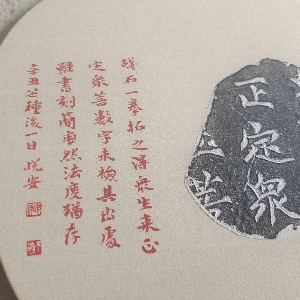 残石一拳拓之得众生来正
定眾菩數字未檢其出處
雖書刻簡率然法度猶存
辛丑芒種後一日 悦安
正定眾
菩